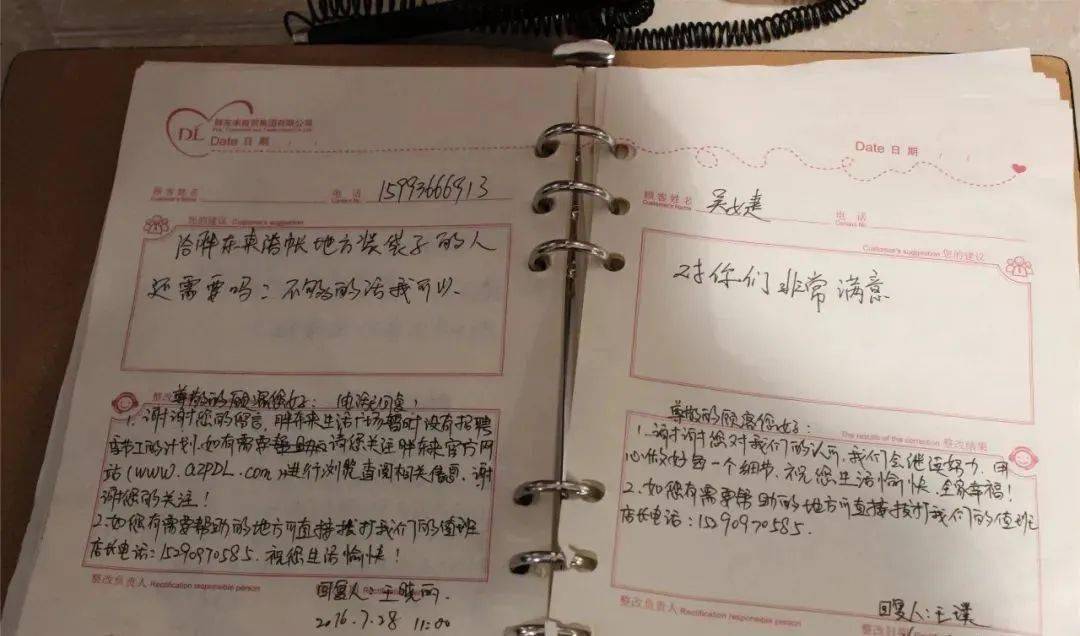 DL
胖东来商贸集团有限公司
Date 日 期 / /
顾客姓名
Customer's Name
电 话
Contact No
15993666913
您的建议 Customer's suggestion
给胖东来结帐地方装袋子的人
还需要吗：不够的话我可以.
尊敬的顾客您好： (电话已回复)
1.谢谢您的留言，胖东来生活广场暂时没有招聘
员工的计划.如有需要 请您关注胖东来官方网
站(www.azpDL.com)进行浏览查阅相关信息，谢
谢您的关注！
2.如您有需要帮助的地方可直接拨打我们的值班
店长电话：15290970585. 祝您生活愉快！
整改负责人 Rectification responsible person
回复人：王晓丽.
2016.7.28 11:00
Date 日 期 / /
顾客姓名
Customer's Name
电 话
Contact No
Customer's suggestion 您的建议
对你们非常满意
尊敬的顾客您好：
The results of the correction 整改结果
1.谢谢您对我们的认可，我们会继续努力，用
心做好每一个细节，祝您生活愉快，全家幸福！
2.如您有需要帮助的地方可直接拨打我们的值班
店长电话：15290970585.
整改负责人 Rectification responsible person